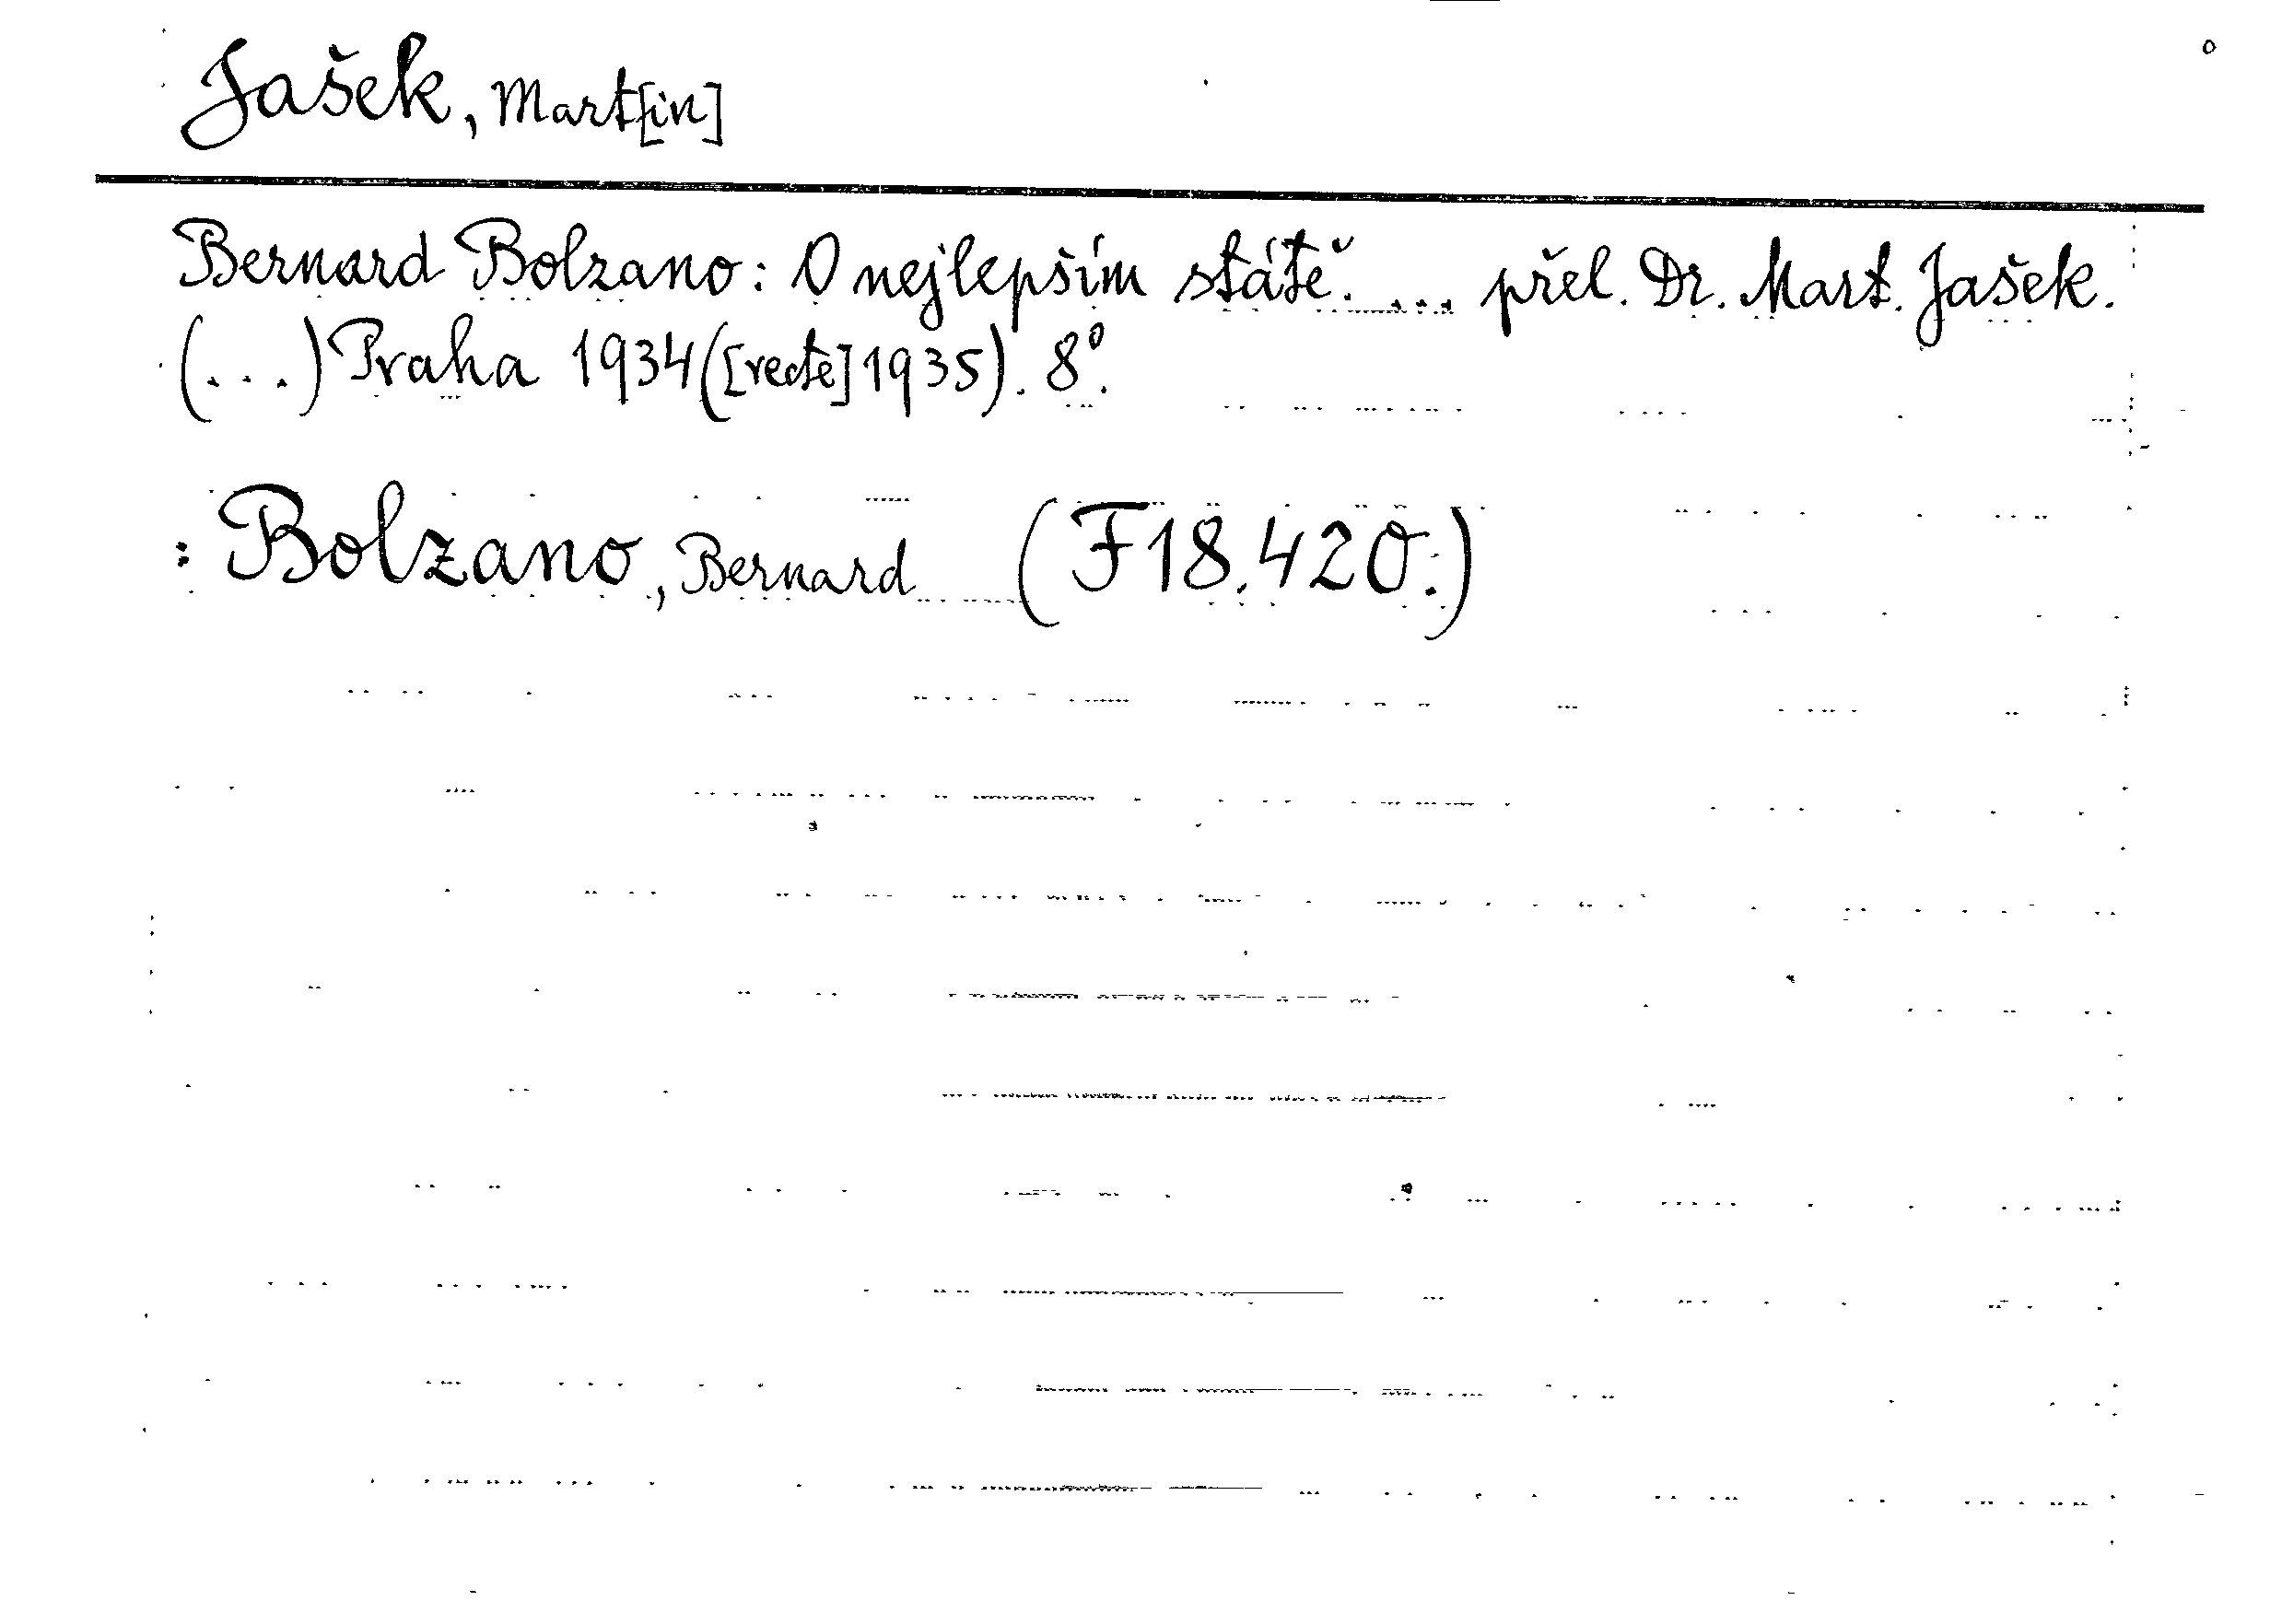 Jašek, Mart[in]
Bernard Bolzano: O nejlepším státě. ... přel. Dr. Mart. Jašek.
(...) Praha 1934([recte]1935). 8°.
: Bolzano, Bernard (F18.420.)